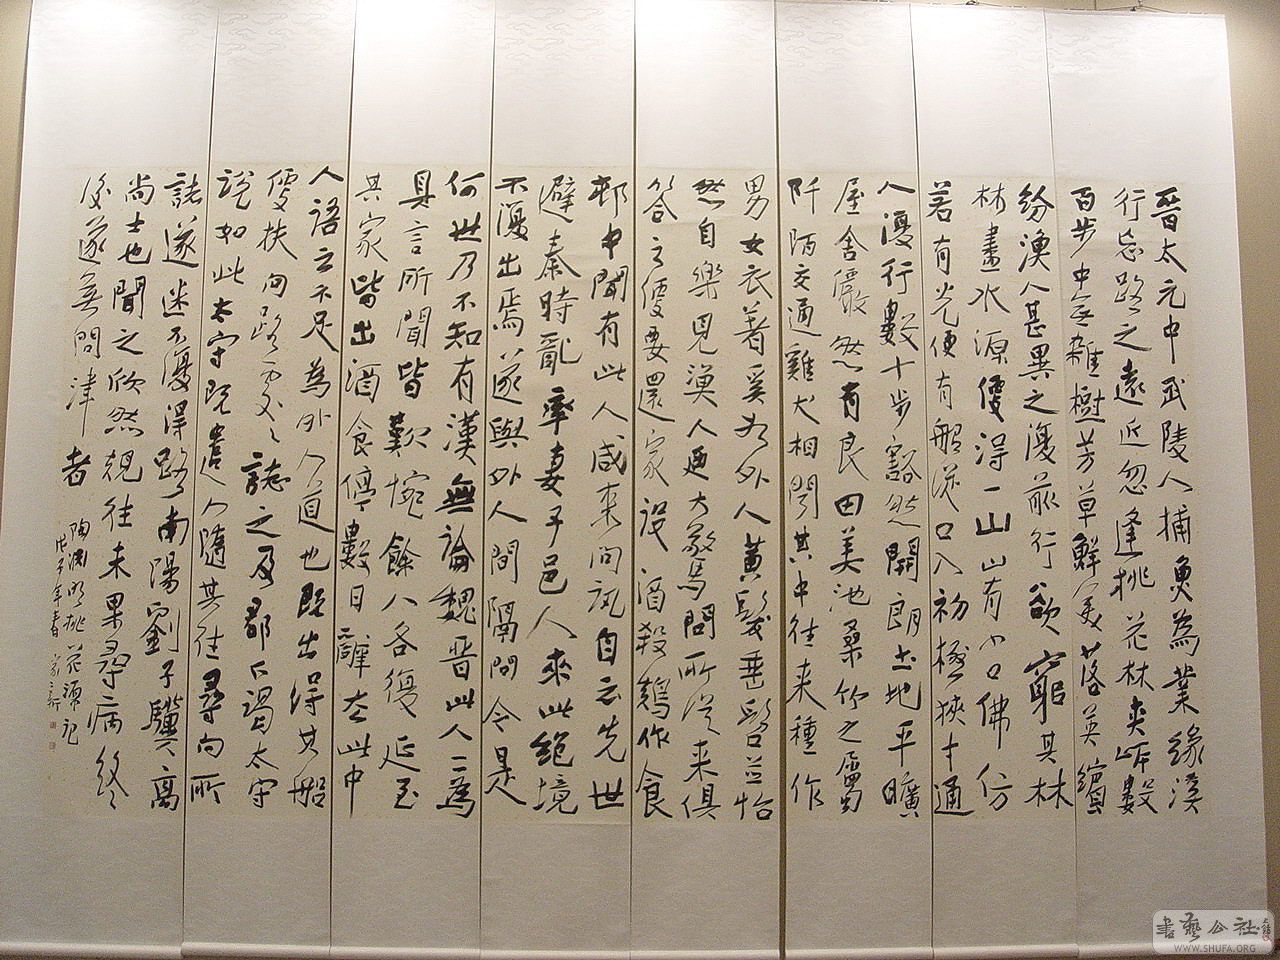 晉太元中武陵人捕魚為業緣溪
行忘路之遠近忽逢桃花林夾岸數
百步中無雜樹芳草鮮美落英繽
紛漁人甚異之復前行欲窮其林
林盡水源便得一山山有小口彿仿
若有光便有船從口入初極狹才通
人復行數十步豁然開朗土地平曠
屋舍儼然有良田美池桑竹之屬
阡陌交通雞犬相聞其中往來種作
男女衣著奚為外人黃髮垂髫並怡
然自樂見漁人迺大驚問所從來俱
答之便要還家設酒殺鷄作食
邨中聞有此人咸來問訊自云先世
避秦時亂率妻子邑人來此絕境
不復出焉遂與外人間隔問今是
何世乃不知有漢無論魏晉此人一為
具言所聞皆歎惋餘人各復延至
其家皆出酒食停數日辭去此中
人語云不足為外人道也既出得其船
便扶向路處處誌之及郡下謁太守
說如此太守既遣人隨其往尋向所
誌遂迷不復得路南陽劉子驥高
尚士也聞之欣然規往未果尋病終
後遂無問津者
陶淵明桃花源記
戊子年書
書藝公社
WWW.SHUFA.ORG